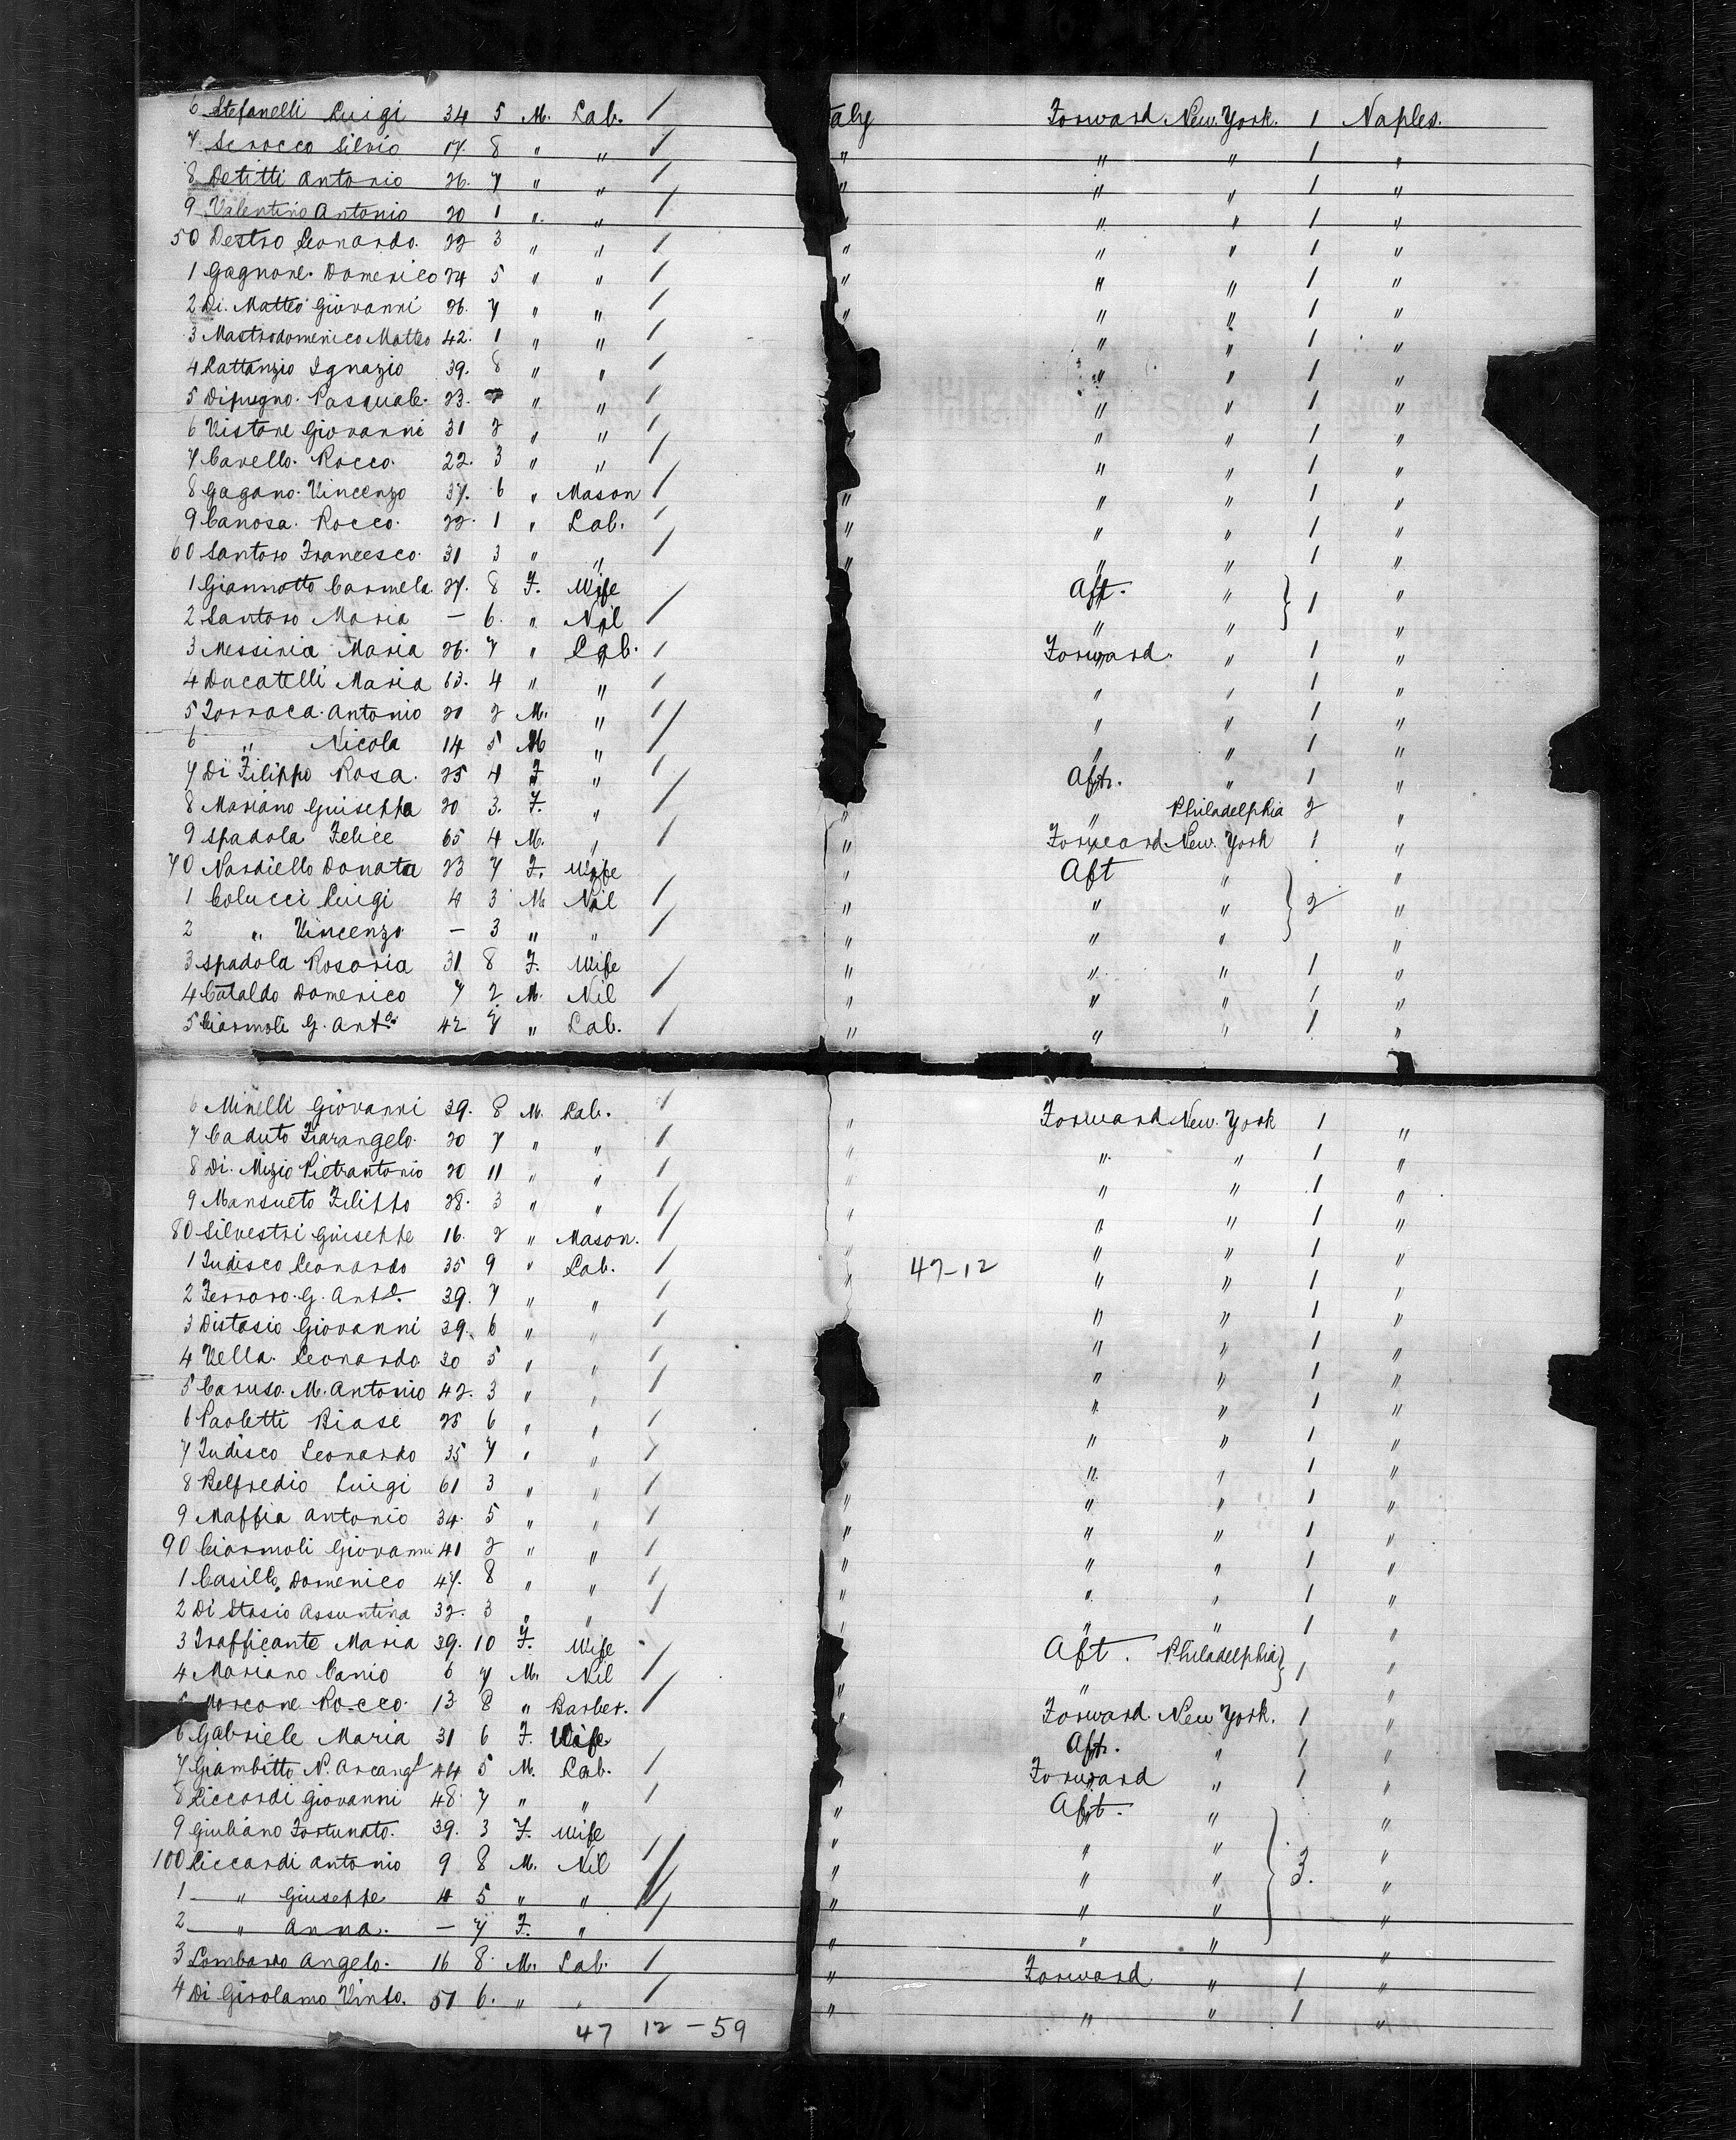 6 Stefanelli Luigi 34 5 M. Lab. / taly Forward New York. 1 Naples.
7 Scrocco Silvio 17. 8 " " / " " " 1 "
8 Detitti Antonio 26. 7 " " / " " " 1 "
9 Valentino Antonio 20 1 " " / " " " 1 "
50 Destro Leonardo. 22 3 " " / " " " 1 "
1 Gagnone. Domenico 24 5 " " / " " " 1 "
2 Di. Matteo Giovanni 26. 7 " " / " " " 1 "
3 Mastrodomenico Matteo 42. 1 " " / " " 1 "
4 Lattanzio Ignazio 39. 8 " " / " " 1 "
5 Dipugno. Pasquale. 23. " " / " " 1 "
6 Vistone Giovanni 31 2 " " / " " 1 "
7 Carello. Rocco. 22. 3 " " / " " 1 "
8 Gagano. Vincenzo 37. 6 " Mason / " " " 1 "
9 Canosa. Rocco. 22. 1 " Lab. / " " " 1 "
60 Santoro Francesco. 31 3 " " / " " " 1 "
1 Giannotto Carmela. 27. 8 F. Wife Aft. " "
2 Santoro Maria — 6. " Nil / " " } 1 "
3 Messinia Maria 26. 7 " Lab. / Forward. " 1 "
4 Ducatelli Maria 63. 4 " " / " " 1 "
5 Torraca. Antonio 20 2 M. " / " " 1 "
6 " Nicola 14 5 M " / " " 1 "
7 Di Filippo Rosa. 25 4 F " / Aft. " 1 "
8 Mariano Guiseppa 20 3. F. " / " " Philadelphia 2 "
9 Spadola Felice 65 4 M. " / " Forward New York 1 "
70 Nardiello Donata 23 7 F. Wife Aft " "
1 Colucci Luigi 4 3 M Nil / " " " } 2 "
2 " Vincenzo — 3 " " / " " " "
3 Spadola Rosaria 31 8 F. Wife " " " 1 "
4 Cataldo Domenico 7 2 M. Nil / " " " 1 "
5 Ciarmoli G. Anto. 42 7 " Lab. / " " " 1 "
6 Minelli Giovanni 39. 8 M. Lab. / " Forward New York 1 "
7 Caduto Fiarangelo. 20 7 " " / " " " 1 "
8 Di. Mizio Pietrantonio 20 11 " " / " " " 1 "
9 Mansueto Filippo 28. 3 " " / " " " 1 "
80 Silvestri Guiseppe 16. 2 " Mason. / " " " 1 "
1 Iudisco Leonardo 35 9 " Lab. / " 47-12 " " 1 "
2 Ferraro. G. Anto. 39. 7 " " / " " 1 "
3 Distasio Giovanni 39. 6 " " / " " 1 "
4 Vella. Leonardo. 30 5 " " / " " 1 "
5 Caruso. M. Antonio 42. 3 " " / " " 1 "
6 Paoletti Biase 25 6 " " / " " 1 "
7 Iudisco Leonardo 35 7 " " / " " 1 "
8 Belfredio Luigi 61 3 " " / " " " 1 "
9 Maffia Antonio 34. 5 " " / " " " 1 "
90 Ciarmoli Giovanni 41 2 " " / " " " 1 "
1 Casillo Domenico 47. 8 " " / " " " 1 "
2 Di Stasio Assuntina 32. 3 " " / " " " 1 "
3 Trafficante Maria 39. 10 F. Wife Aft. Philadelphia "
4 Mariano Canio 6 7 M. Nil / " " } 1 "
5 Morcone Rocco. 13 8 " Barber. / " Forward. New York. 1 "
6 Gabriele Maria 31 6 F. Wife Aft. " 1 "
7 Giambitto N. Arcangl 44 5 M. Lab. / " Forward " 1 "
8 Riccardi Giovanni 48. 7 " " / " Aft. " "
9 Giuliano Fortunato. 39. 3 F. Wife " " " "
100 Riccardi Antonio 9 8 M. Nil / " " " } 3. "
1 " Giuseppe 4 5 " " / " " " "
2 " Anna. — 7 F. " / " " " "
3 Lombardo Angelo. 16 8. M. Lab. / " Forward " 1 "
4 Di Girolamo Vinto. 51 6. " " / " " " 1 "
47 12 - 59